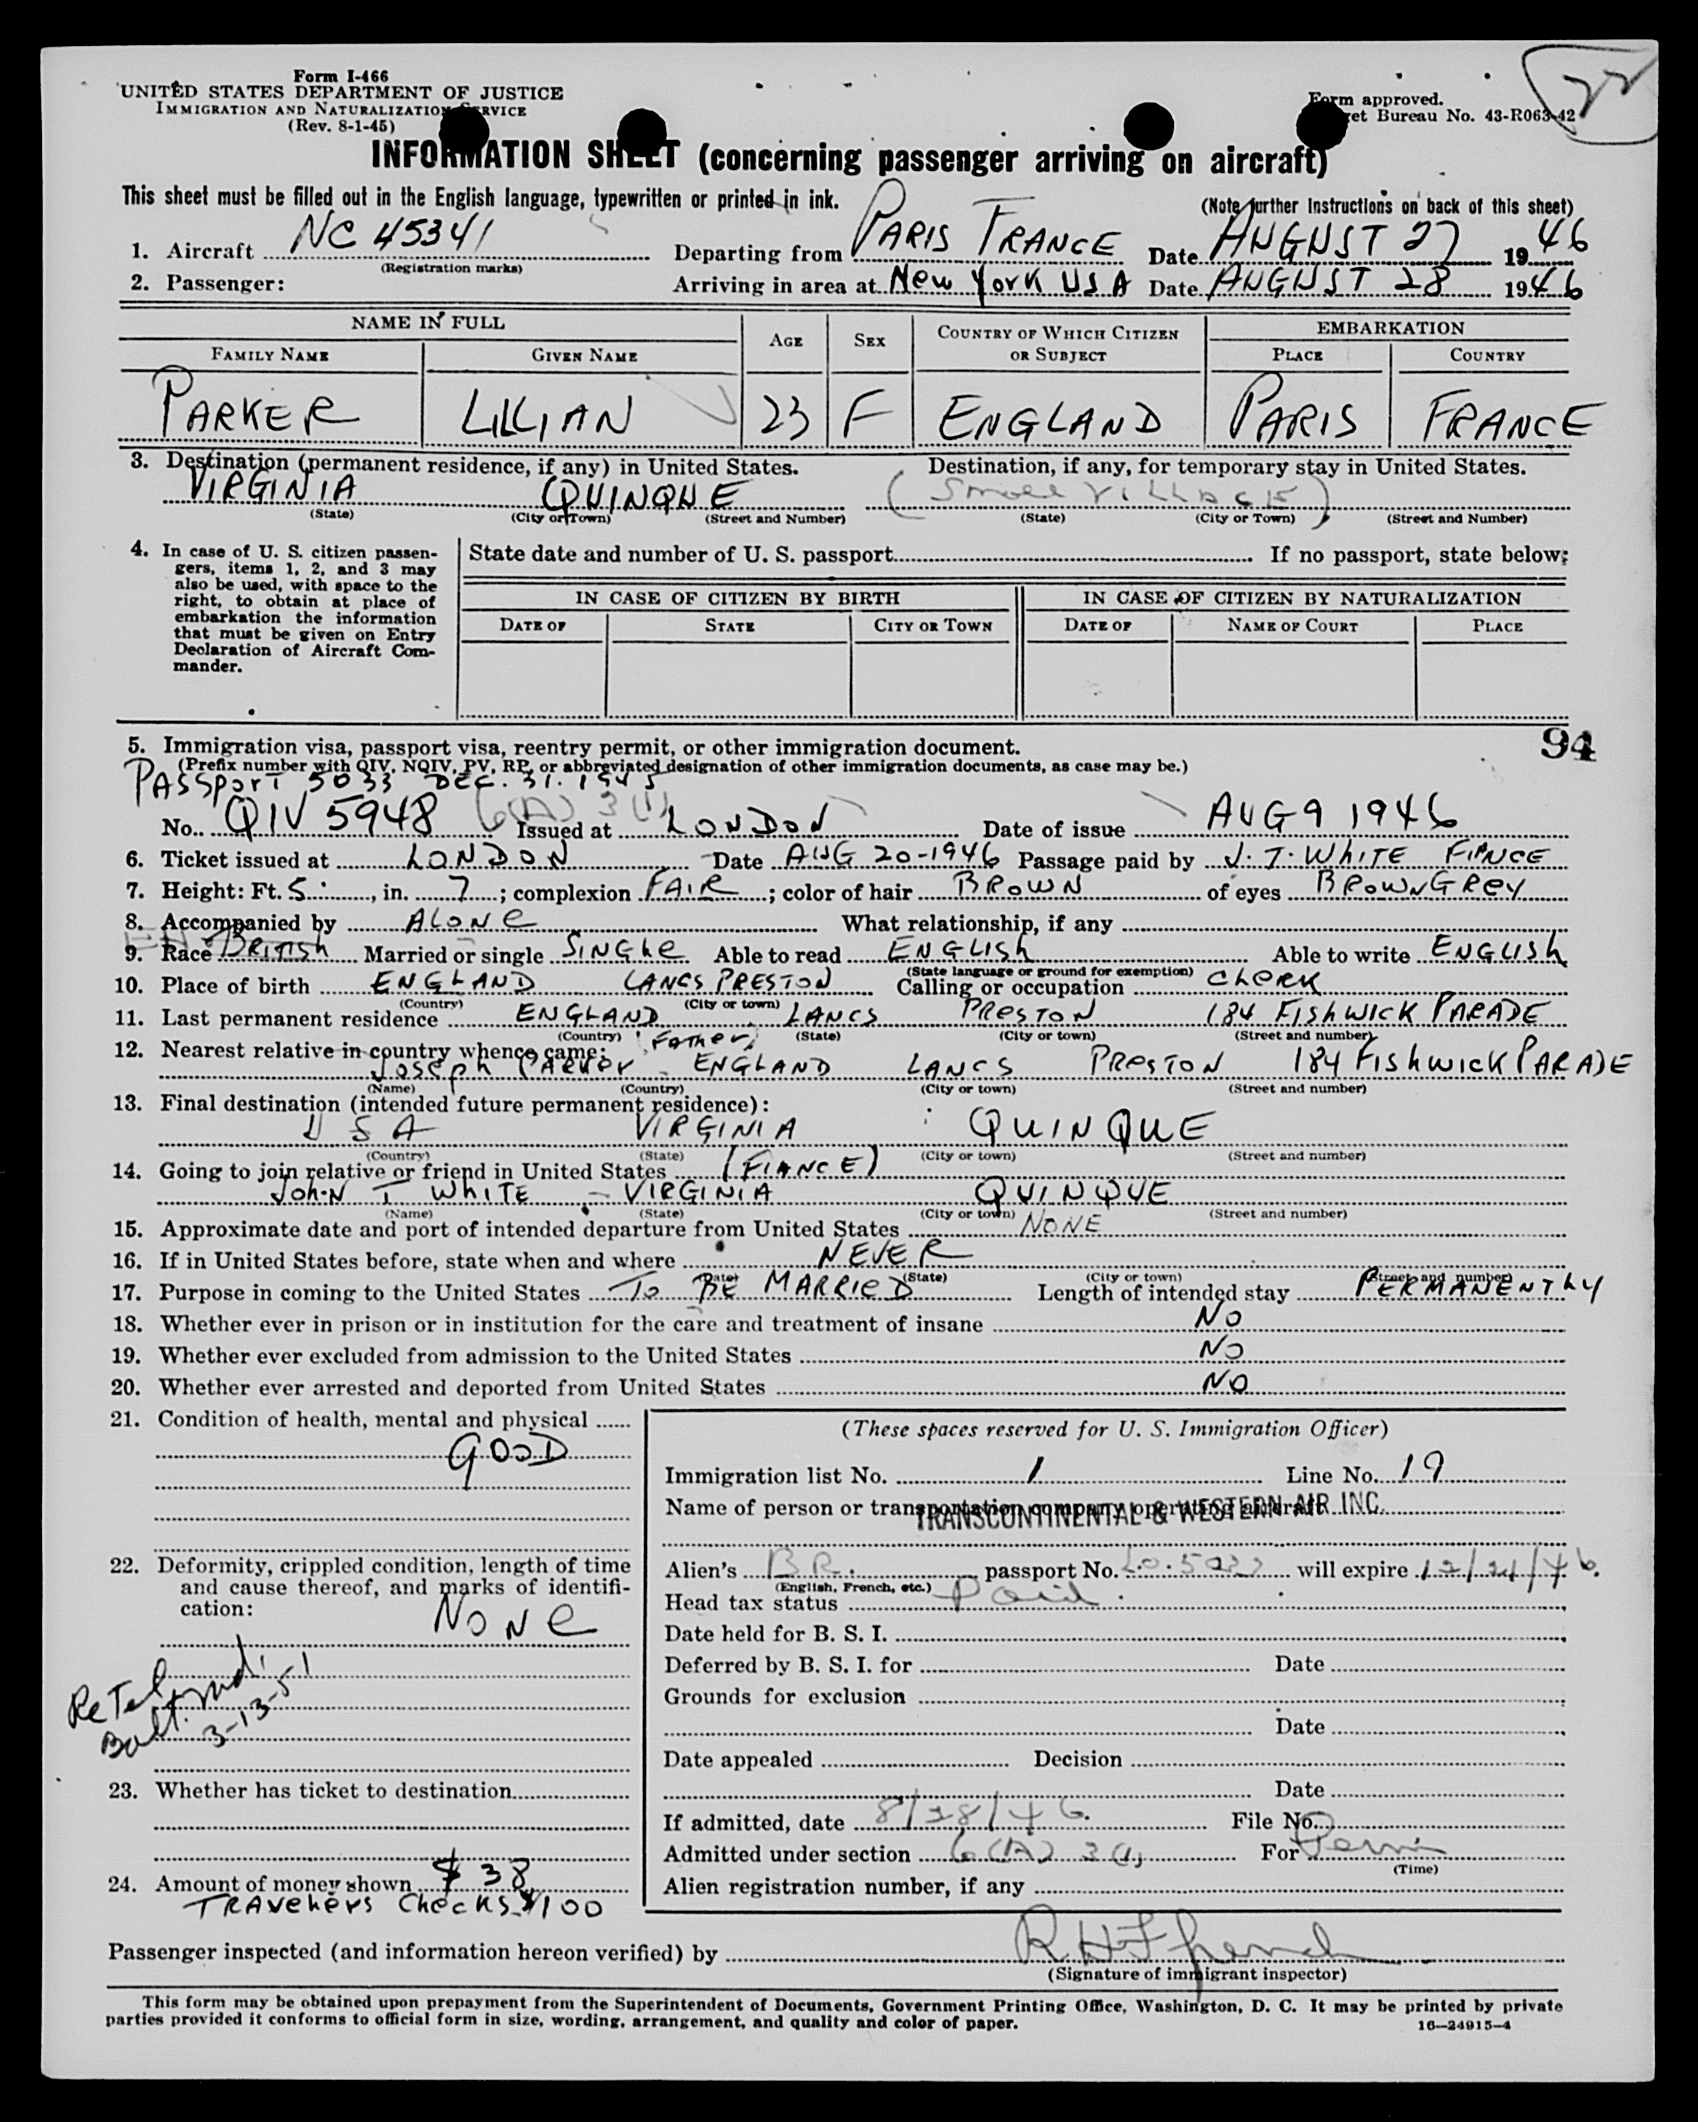 Form I-466
UNITED STATES DEPARTMENT OF JUSTICE
IMMIGRATION AND NATURALIZATION SERVICE
(Rev. 8-1-45)
Form approved.
Budget Bureau No. 43-R063-42
22
INFORMATION SHEET (concerning passenger arriving on aircraft)
This sheet must be filled out in the English language, typewritten or printed in ink.
(Note further Instructions on back of this sheet)
1. Aircraft NC 45341 Departing from PARIS FRANCE Date AUGUST 27 1946
(Registration marks)
2. Passenger: Arriving in area at New York USA Date AUGUST 28 1946
NAME IN FULL AGE SEX COUNTRY OF WHICH CITIZEN OR SUBJECT EMBARKATION
FAMILY NAME GIVEN NAME PLACE COUNTRY
PARKER LILLIAN 23 F ENGLAND PARIS FRANCE
3. Destination (permanent residence, if any) in United States. Destination, if any, for temporary stay in United States.
VIRGINIA QUINQUE (Small VILLAGE)
(State) (City or Town) (Street and Number) (State) (City or Town) (Street and Number)
4. In case of U. S. citizen passen-
gers, items 1, 2, and 3 may
also be used, with space to the
right, to obtain at place of
embarkation the information
that must be given on Entry
Declaration of Aircraft Com-
mander.
State date and number of U. S. passport If no passport, state below:
IN CASE OF CITIZEN BY BIRTH IN CASE OF CITIZEN BY NATURALIZATION
DATE OF STATE CITY OR TOWN DATE OF NAME OF COURT PLACE
94
5. Immigration visa, passport visa, reentry permit, or other immigration document.
(Prefix number with QIV, NQIV, PV, RP, or abbreviated designation of other immigration documents, as case may be.)
PASSPORT 5033 DEC. 31. 1945
No. QIV 5948 6(A) 3(1) Issued at LONDON Date of issue AUG 9 1946
6. Ticket issued at LONDON Date AUG 20-1946 Passage paid by J. T. WHITE FIANCE
7. Height: Ft. 5, in. 7; complexion FAIR; color of hair BROWN of eyes BROWN GREY
8. Accompanied by ALONE What relationship, if any
9. Race BRITISH Married or single SINGLE Able to read ENGLISH Able to write ENGLISH
(State language or ground for exemption)
10. Place of birth ENGLAND LANCS PRESTON Calling or occupation CLERK
(Country) (City or town)
11. Last permanent residence ENGLAND LANCS PRESTON 184 FISHWICK PARADE
(Country) (State) (City or town) (Street and number)
12. Nearest relative in country whence came: (Father)
JOSEPH PARKER ENGLAND LANCS PRESTON 184 FISHWICK PARADE
(Name) (Country) (City or town) (Street and number)
13. Final destination (intended future permanent residence):
USA VIRGINIA QUINQUE
(Country) (State) (City or town) (Street and number)
14. Going to join relative or friend in United States (FIANCE)
JOHN T WHITE - VIRGINIA QUINQUE
(Name) (State) (City or town) (Street and number)
15. Approximate date and port of intended departure from United States NONE
16. If in United States before, state when and where NEVER
(Date) (State) (City or town) (Street and number)
17. Purpose in coming to the United States TO BE MARRIED Length of intended stay PERMANENTLY
18. Whether ever in prison or in institution for the care and treatment of insane NO
19. Whether ever excluded from admission to the United States NO
20. Whether ever arrested and deported from United States NO
21. Condition of health, mental and physical
GOOD
22. Deformity, crippled condition, length of time
and cause thereof, and marks of identifi-
cation:
NONE
Re Tel
Balt. Md.
3-13-51
23. Whether has ticket to destination
24. Amount of money shown $38
TRAVELERS CHECKS $100
(These spaces reserved for U. S. Immigration Officer)
Immigration list No. 1 Line No. 19
Name of person or transportation company operating aircraft
TRANSCONTINENTAL & WESTERN AIR INC.
Alien's BR. passport No. will expire 12/31/46.
(English, French, etc.)
Head tax status Paid
Date held for B. S. I.
Deferred by B. S. I. for Date
Grounds for exclusion
Date
Date appealed Decision
Date
If admitted, date 8/28/46. File No.
Admitted under section 6(A) 3(1) For Perm
(Time)
Alien registration number, if any
Passenger inspected (and information hereon verified) by
(Signature of immigrant inspector)
This form may be obtained upon prepayment from the Superintendent of Documents, Government Printing Office, Washington, D. C. It may be printed by private
parties provided it conforms to official form in size, wording, arrangement, and quality and color of paper.
16—24915-4